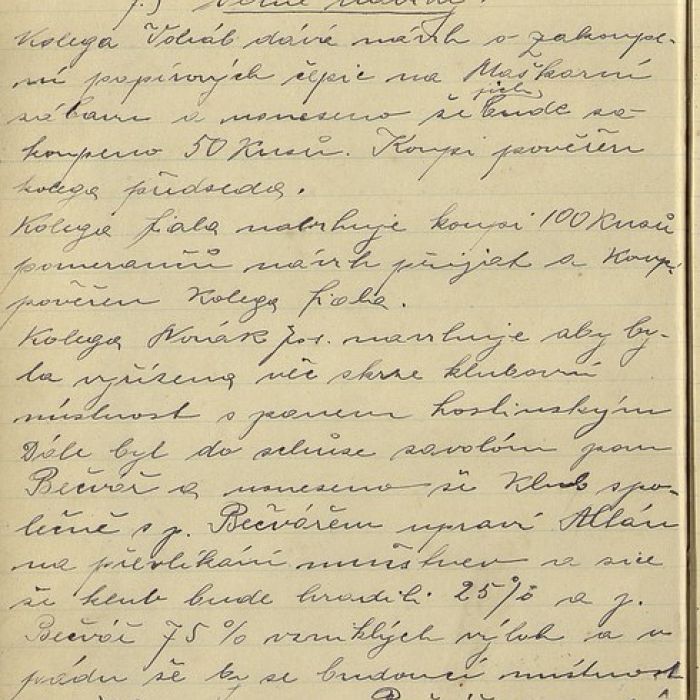 7.) Volné návrhy.
Kolega Voháb dává návrh o zakoupe-
ní papírových čepic na Maškarní
zábavu a usneseno že jich bude za-
koupeno 50 Kusů. Koupí pověřen
kolega předseda.
Kolega Fiala natrhuje koupi 100 Kusů
pomerančů návrh přijat a Koupí
pověřen Kolega Fiala.
Kolega Novák Jos. navrhuje aby by-
la vyřízena věc skrze klubovní
místnost s panem hostinským
Dále byl do schůse zavolán pan
Bečvář a usneseno že Klub spo-
lečně s p. Bečvářem upraví Altán
na převlíkání mužstev a sice
že klub bude hraditi 25% a p.
Bečvář 75% vzniklých výloh a v
pádu že by se budoucí místnost